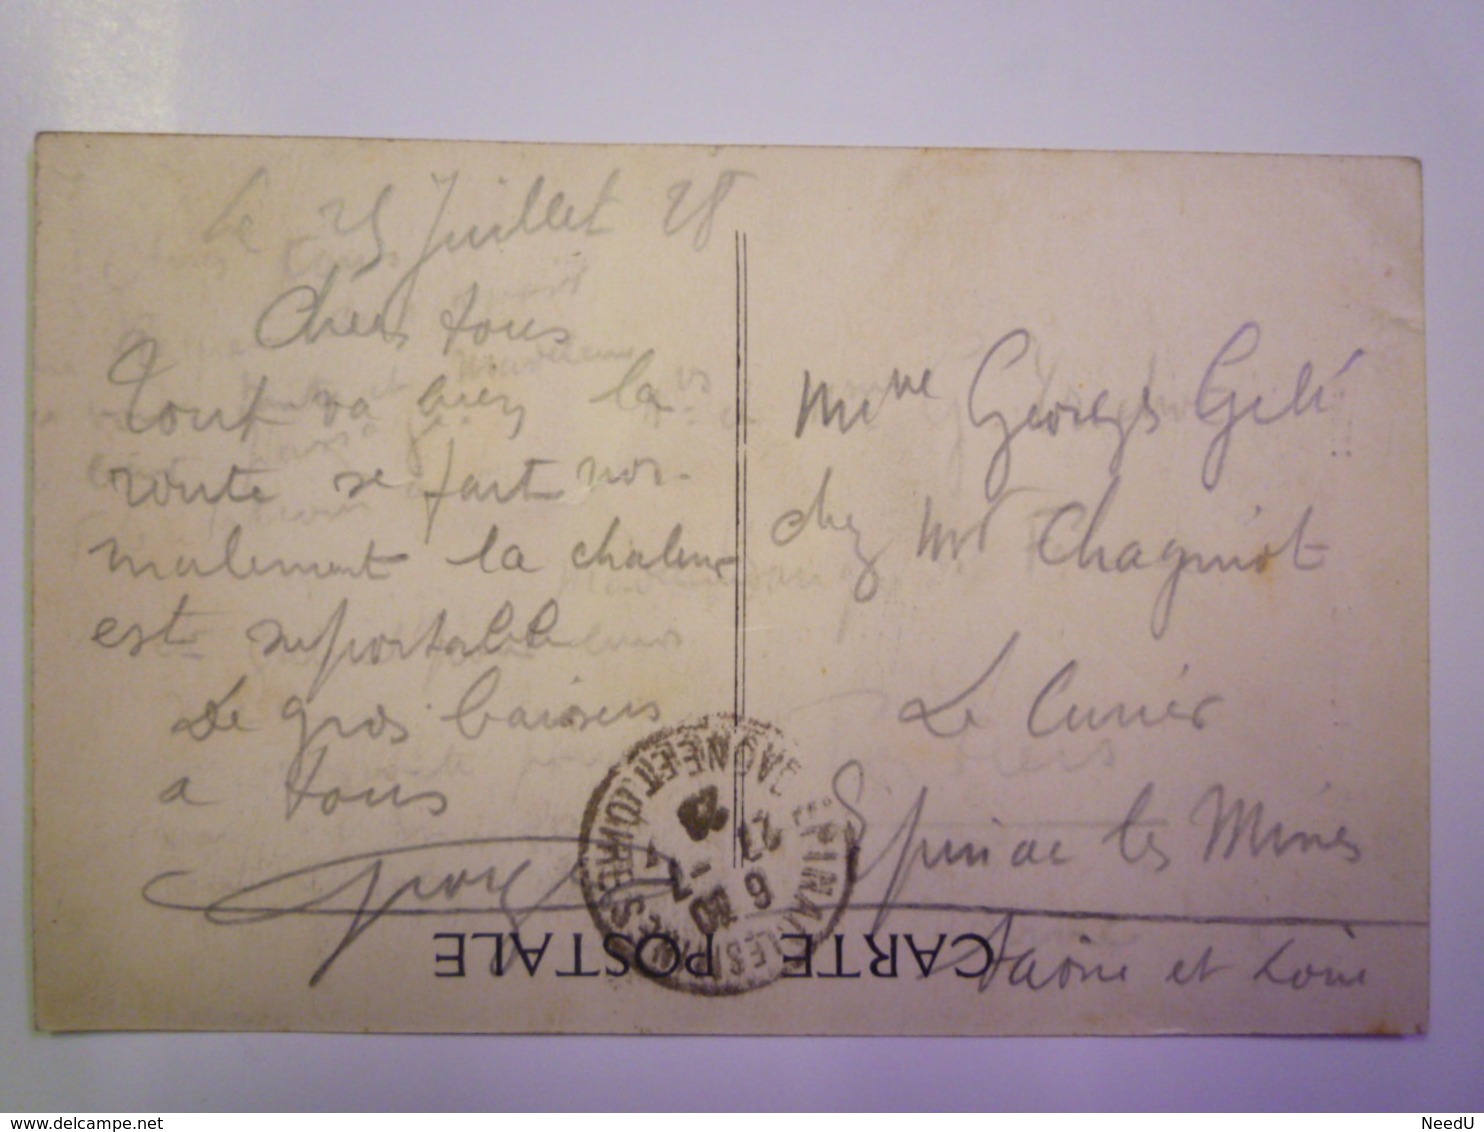 Le 25 Juillet 28
Chers tous
Tout va bien la
route se fait nor-
malement la chaleur
est suportable
De gros baisers
a tous
Georges
Mme Georges Gelé
chez Mr Chagniot
Le Curier
Epinac les Mines
Saône et Loire
CARTE POSTALE
EPINAC-LES-MINES
SAONE ET LOIRE
6 30
27 - 7
28
NeedU